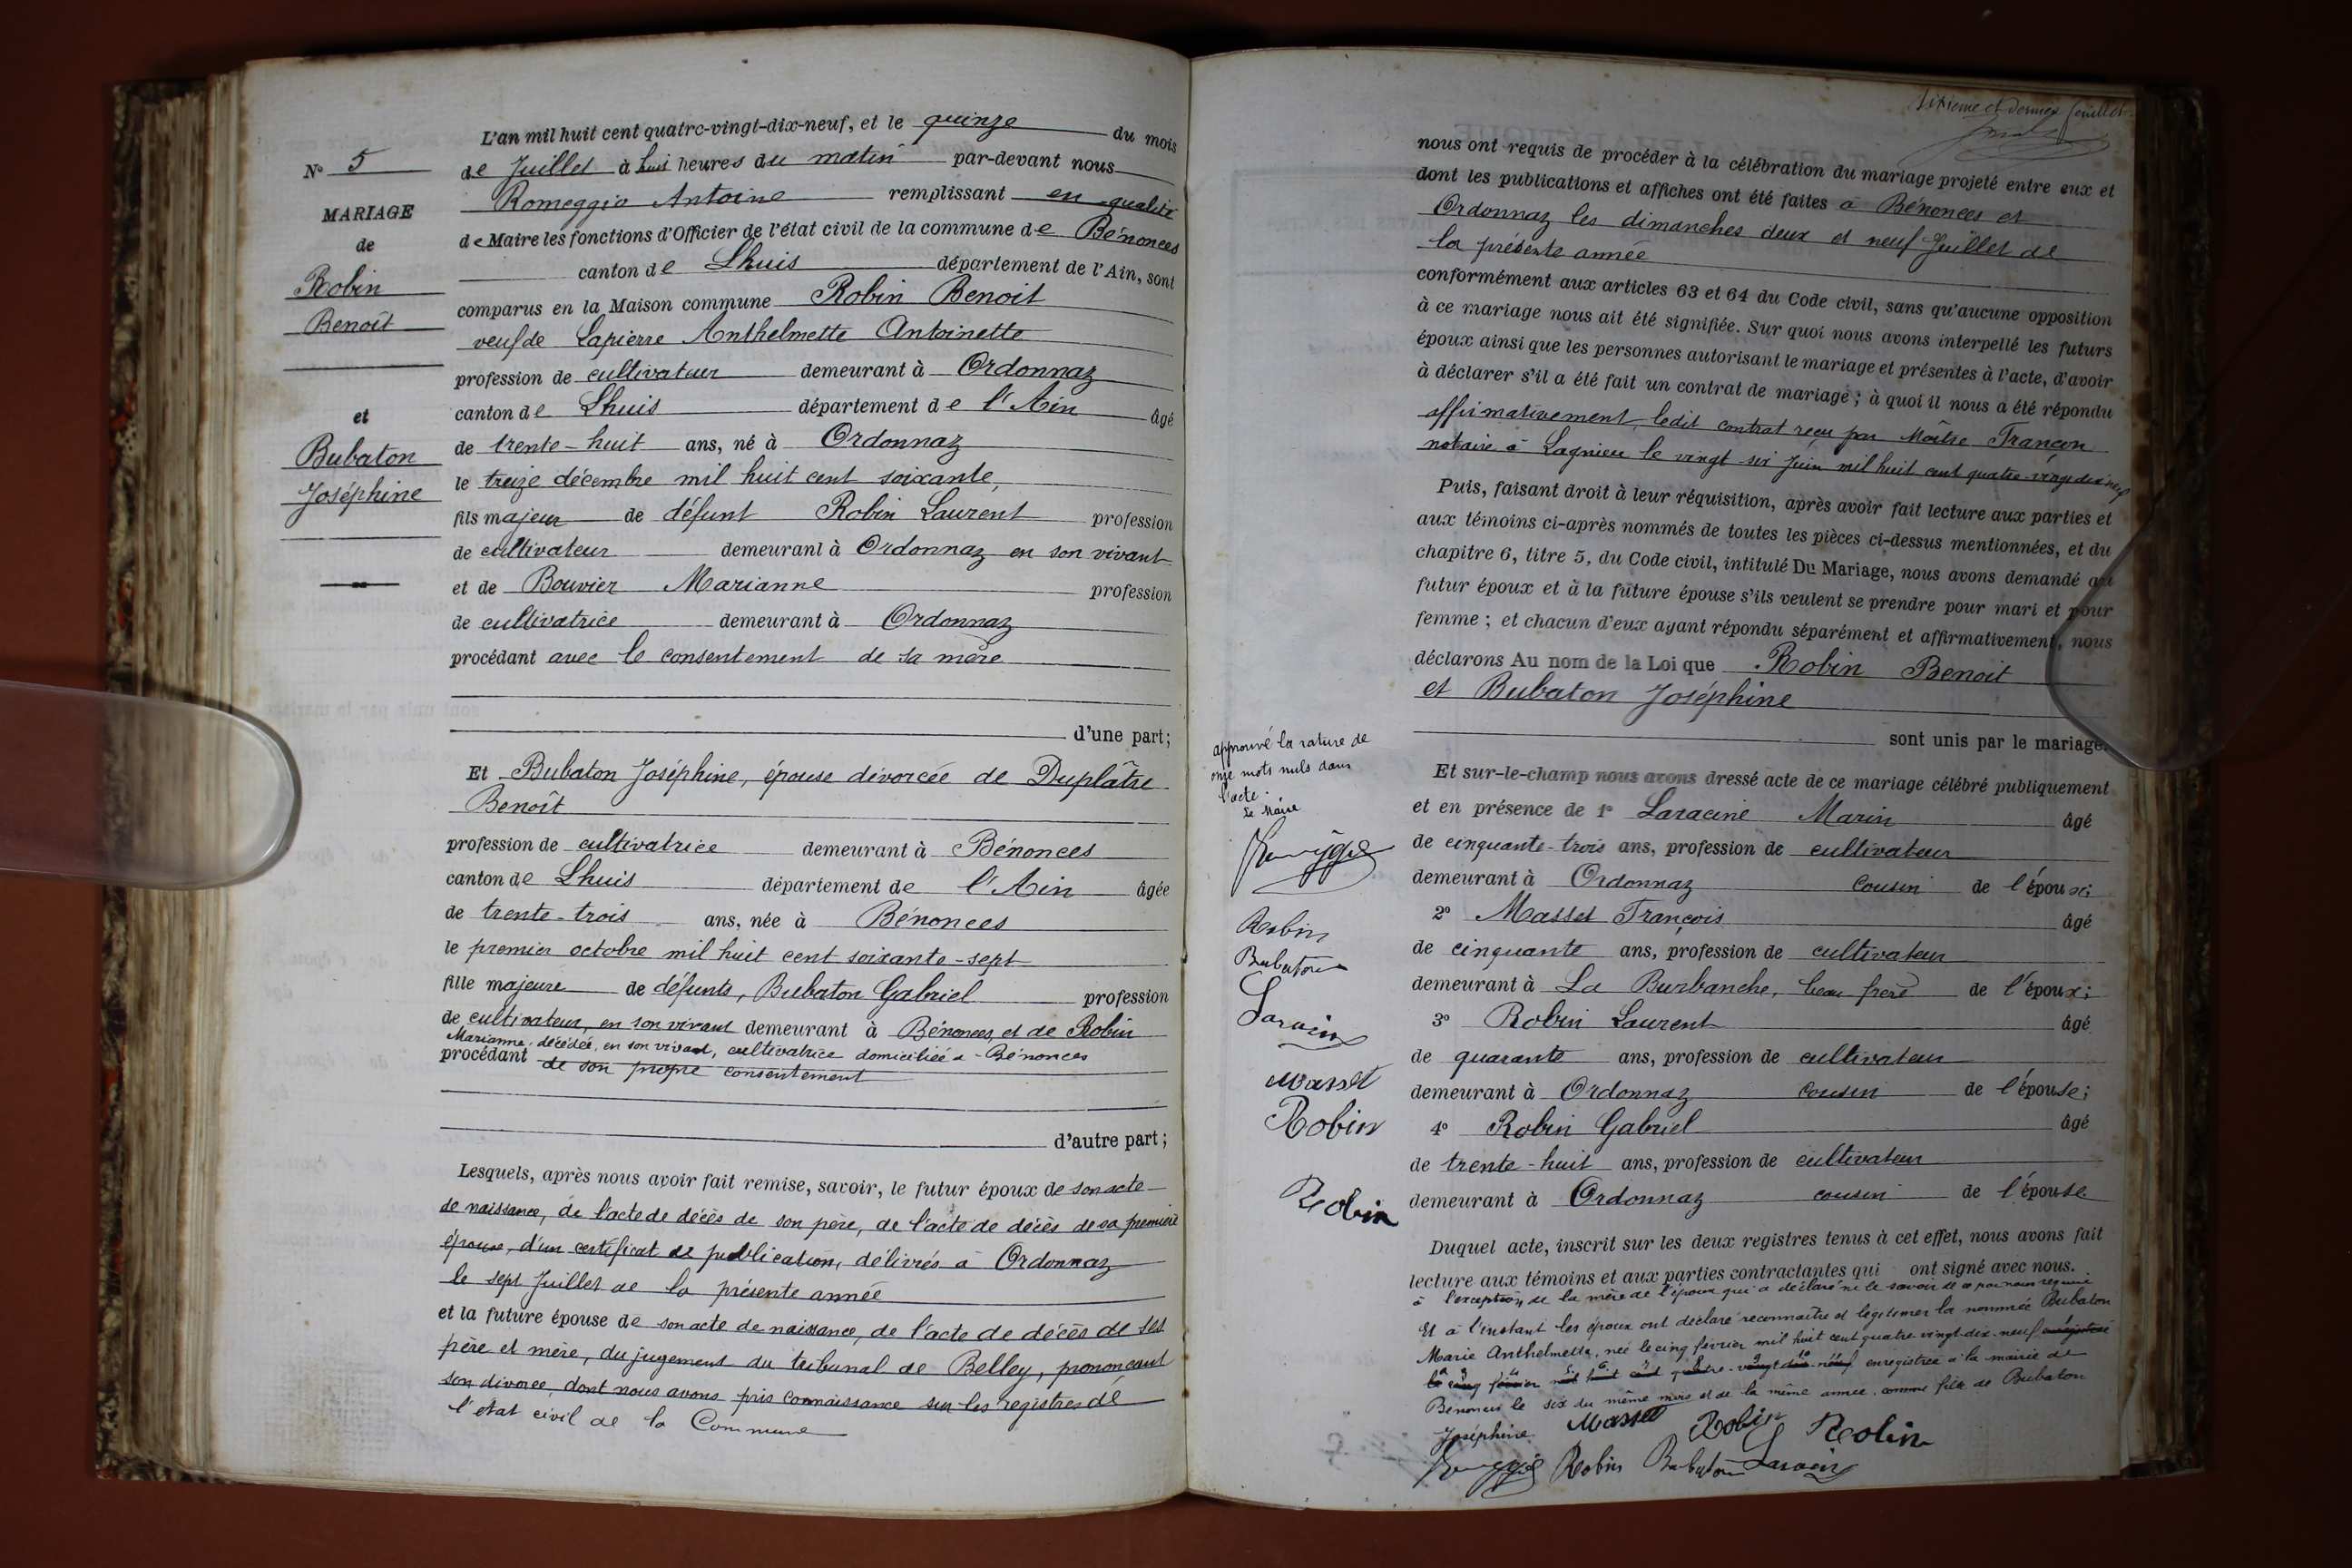 L'an mil huit cent quatre-vingt-dix-neuf, et le quinze du mois
N° 5
de Juillet à huit heures du matin par-devant nous
Romeggio Antoine remplissant en qualité
MARIAGE
de Maire les fonctions d'Officier de l'état civil de la commune de Bénonces
de
canton de Lhuis département de l'Ain, sont
Robin
comparus en la Maison commune Robin Benoit
Benoît
veuf de Lapierre Anthelmette Antoinette
profession de cultivateur demeurant à Ordonnaz
et
canton de Lhuis département de l'Ain âgé
Bubaton
de trente-huit ans, né à Ordonnaz
Joséphine
le treize décembre mil huit cent soixante,
fils majeur de défunt Robin Laurent profession
de cultivateur demeurant à Ordonnaz en son vivant
et de Bouvier Marianne profession
de cultivatrice demeurant à Ordonnaz
procédant avec le consentement de sa mère
d'une part;
Et Bubaton Joséphine, épouse divorcée de Duplâtre
Benoît
profession de cultivatrice demeurant à Bénonces
canton de Lhuis département de l'Ain âgée
de trente-trois ans, née à Bénonces
le premier octobre mil huit cent soixante-sept
fille majeure de défunts, Bubaton Gabriel profession
de cultivateur, en son vivant demeurant à Bénonces, et de Robin
Marianne, décédée, en son vivant, cultivatrice domiciliée à Bénonces
procédant de son propre consentement
d'autre part;
Lesquels, après nous avoir fait remise, savoir, le futur époux de son acte
de naissance, de l'acte de décès de son père, de l'acte de décès de sa première
épouse, d'un certificat de publication, délivrés à Ordonnaz
le sept Juillet de la présente année
et la future épouse de son acte de naissance, de l'acte de décès de ses
père et mère, du jugement du tribunal de Belley, prononçant
son divorce, dont nous avons pris connaissance sur les registres de
l'état civil de la Commune
Sixième et dernier feuillet
nous ont requis de procéder à la célébration du mariage projeté entre eux et
dont les publications et affiches ont été faites à Bénonces et
Ordonnaz les dimanches deux et neuf Juillet de
la présente année
conformément aux articles 63 et 64 du Code civil, sans qu'aucune opposition
à ce mariage nous ait été signifiée. Sur quoi nous avons interpellé les futurs
époux ainsi que les personnes autorisant le mariage et présentes à l'acte, d'avoir
à déclarer s'il a été fait un contrat de mariage; à quoi il nous a été répondu
affirmativement, ledit contrat reçu par Maître Françon
notaire à Lagnieu le vingt-six Juin mil huit cent quatre-vingt-dix-neuf
Puis, faisant droit à leur réquisition, après avoir fait lecture aux parties et
aux témoins ci-après nommés de toutes les pièces ci-dessus mentionnées, et du
chapitre 6, titre 5, du Code civil, intitulé Du Mariage, nous avons demandé au
futur époux et à la future épouse s'ils veulent se prendre pour mari et pour
femme; et chacun d'eux ayant répondu séparément et affirmativement, nous
déclarons Au nom de la Loi que Robin Benoit
et Bubaton Joséphine
sont unis par le mariage.
Et sur-le-champ nous avons dressé acte de ce mariage célébré publiquement
et en présence de 1° Laracine Marin âgé
de cinquante-trois ans, profession de cultivateur
demeurant à Ordonnaz cousin de l'époux;
2° Masset François âgé
de cinquante ans, profession de cultivateur
demeurant à La Burbanche, beau frère de l'époux;
3° Robin Laurent âgé
de quarante ans, profession de cultivateur
demeurant à Ordonnaz cousin de l'épouse;
4° Robin Gabriel âgé
de trente-huit ans, profession de cultivateur
demeurant à Ordonnaz cousin de l'épouse
Duquel acte, inscrit sur les deux registres tenus à cet effet, nous avons fait
lecture aux témoins et aux parties contractantes qui ont signé avec nous.
à l'exception de la mère de l'époux qui a déclaré ne le savoir de ce par nous requise
Et à l'instant les époux ont déclaré reconnaître et légitimer la nommée Bubaton
Marie Anthelmette, née le cinq février mil huit cent quatre-vingt-dix-neuf enregistrée
le cinq février mil huit cent quatre-vingt-dix-neuf enregistrée à la mairie de
Bénonces le six du même mois et de la même année, comme fille de Bubaton
Joséphine. Masset Robin Robin
Robin Bubaton
approuvé la rature de
onze mots nuls dans
l'acte.
Le Maire
Robin
Bubaton
Masset
Robin
Robin